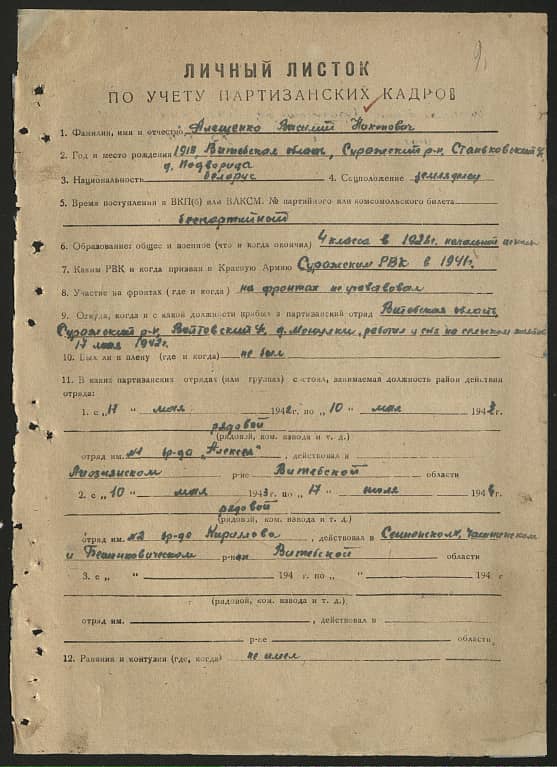 9.
ЛИЧНЫЙ ЛИСТОК
ПО УЧЕТУ ПАРТИЗАНСКИХ КАДРОВ
1. Фамилия, имя и отчество Алещенко Василий Никонович
2. Год и место рождения 1913 Витебская область, Суражский р-н, Станьковский
д. Подворица
3. Национальность белорус 4. Соцположение
5. Время поступления в ВКП(б) или ВЛКСМ. № партийного или комсомольского билета
беспартийный
6. Образование: общее и военное (что и когда окончил) 4 класса в 1926г. начальной школы
7. Каким РВК и когда призван в Красную Армию Суражским РВК в 1941г.
8. Участие на фронтах (где и когда) на фронтах не учавствовал
9. Откуда, когда и с какой должности прибыл в партизанский отряд Витебская область
Суражский р-н, Войтовский д. работал у себя на сельском
17 мая 1942г.
10. Был ли в плену (где и когда) не был
11. В каких партизанских отрядах (или группах) состоял, занимаемая должность район действия
отряда:
1. с „17 " мая 1942г. по „ 10 " мая 1943г.
рядовой
(рядовой, ком. взвода и т. д.)
отряд им. №1 бр-да „Алексея" , действовал в
Лиозненском р-не Витебской области
2. с „ 10 " мая 1943г. по „ 17 " июля 194 г.
рядовой
(рядовой, ком. взвода и т. д.)
отряд им. №2 бр-да Кириллова , действовал в Сенненском, Чашникском
и Бешенковическом р-нах Витебской области
3. с „ " 194 г. по „ " 194 г
(рядовой, ком. взвода и т. д.)
отряд им. , действовал в
р-не области
12. Ранения и контузии (где, когда) не имел